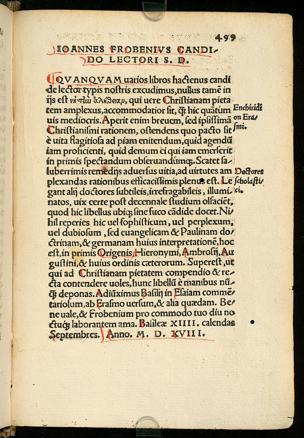 499
IOANNES FROBENIVS CANDI-
DO LECTORI S. D.
QVANQVAM uarios libros hactenus candi
de lector typis nostris excudimus, nullus tamē in
ijs est qui uere Christianam pieta
tem amplexus, accommodatior sit, q̃ hic quātum
uis mediocris. Aperit enim breuem, sed ipsissimā
Christianismi rationem, ostendens quo pacto sit
è uita stagiosa ad piam eniendum, quid agendū
iam proficienti, quid demum ei qui iam emerserit
in primis spectandum obseruandūmq;. Scatet sa-
luberrimis remedijs aduersus uitia, ad uirtutes am
plexandas rationibus efficacissimis plenus est. Le
gant alij doctores subtileis, irrefragabileis, illumi-
natos, uix certe post decennale studium olfaciēt,
quod hic libellus abiq; sine fuco cādide docet. Ni
hil reperies hic uel sophisticum, uel perplexum,
uel dubiosum, sed euangelicam & Paulinam do-
ctrinam, & germanam huius interpretationē, hoc
est, in primis Origenis, Hieronymi, Ambrosij, Au
gustini, & huius ordinis cæterorum. Superest, ut
qui ad Christianam pietatem compendio & re-
cta contendere uoles, hunc libellū è manibus nū-
q̃ deponas. Adiūximus Basilij in Esaiam commē-
tariolum, ab Erasmo uersum, & alia quædam. Be
ne uale, & Frobenium pro commodo tuo diu no
ctuq; laborantem ama. Basileæ XIIII. calendas
Septembres. Anno. M. D. XVIII.
Enchiridi
on Eras
mi.
Doctores
scholasti